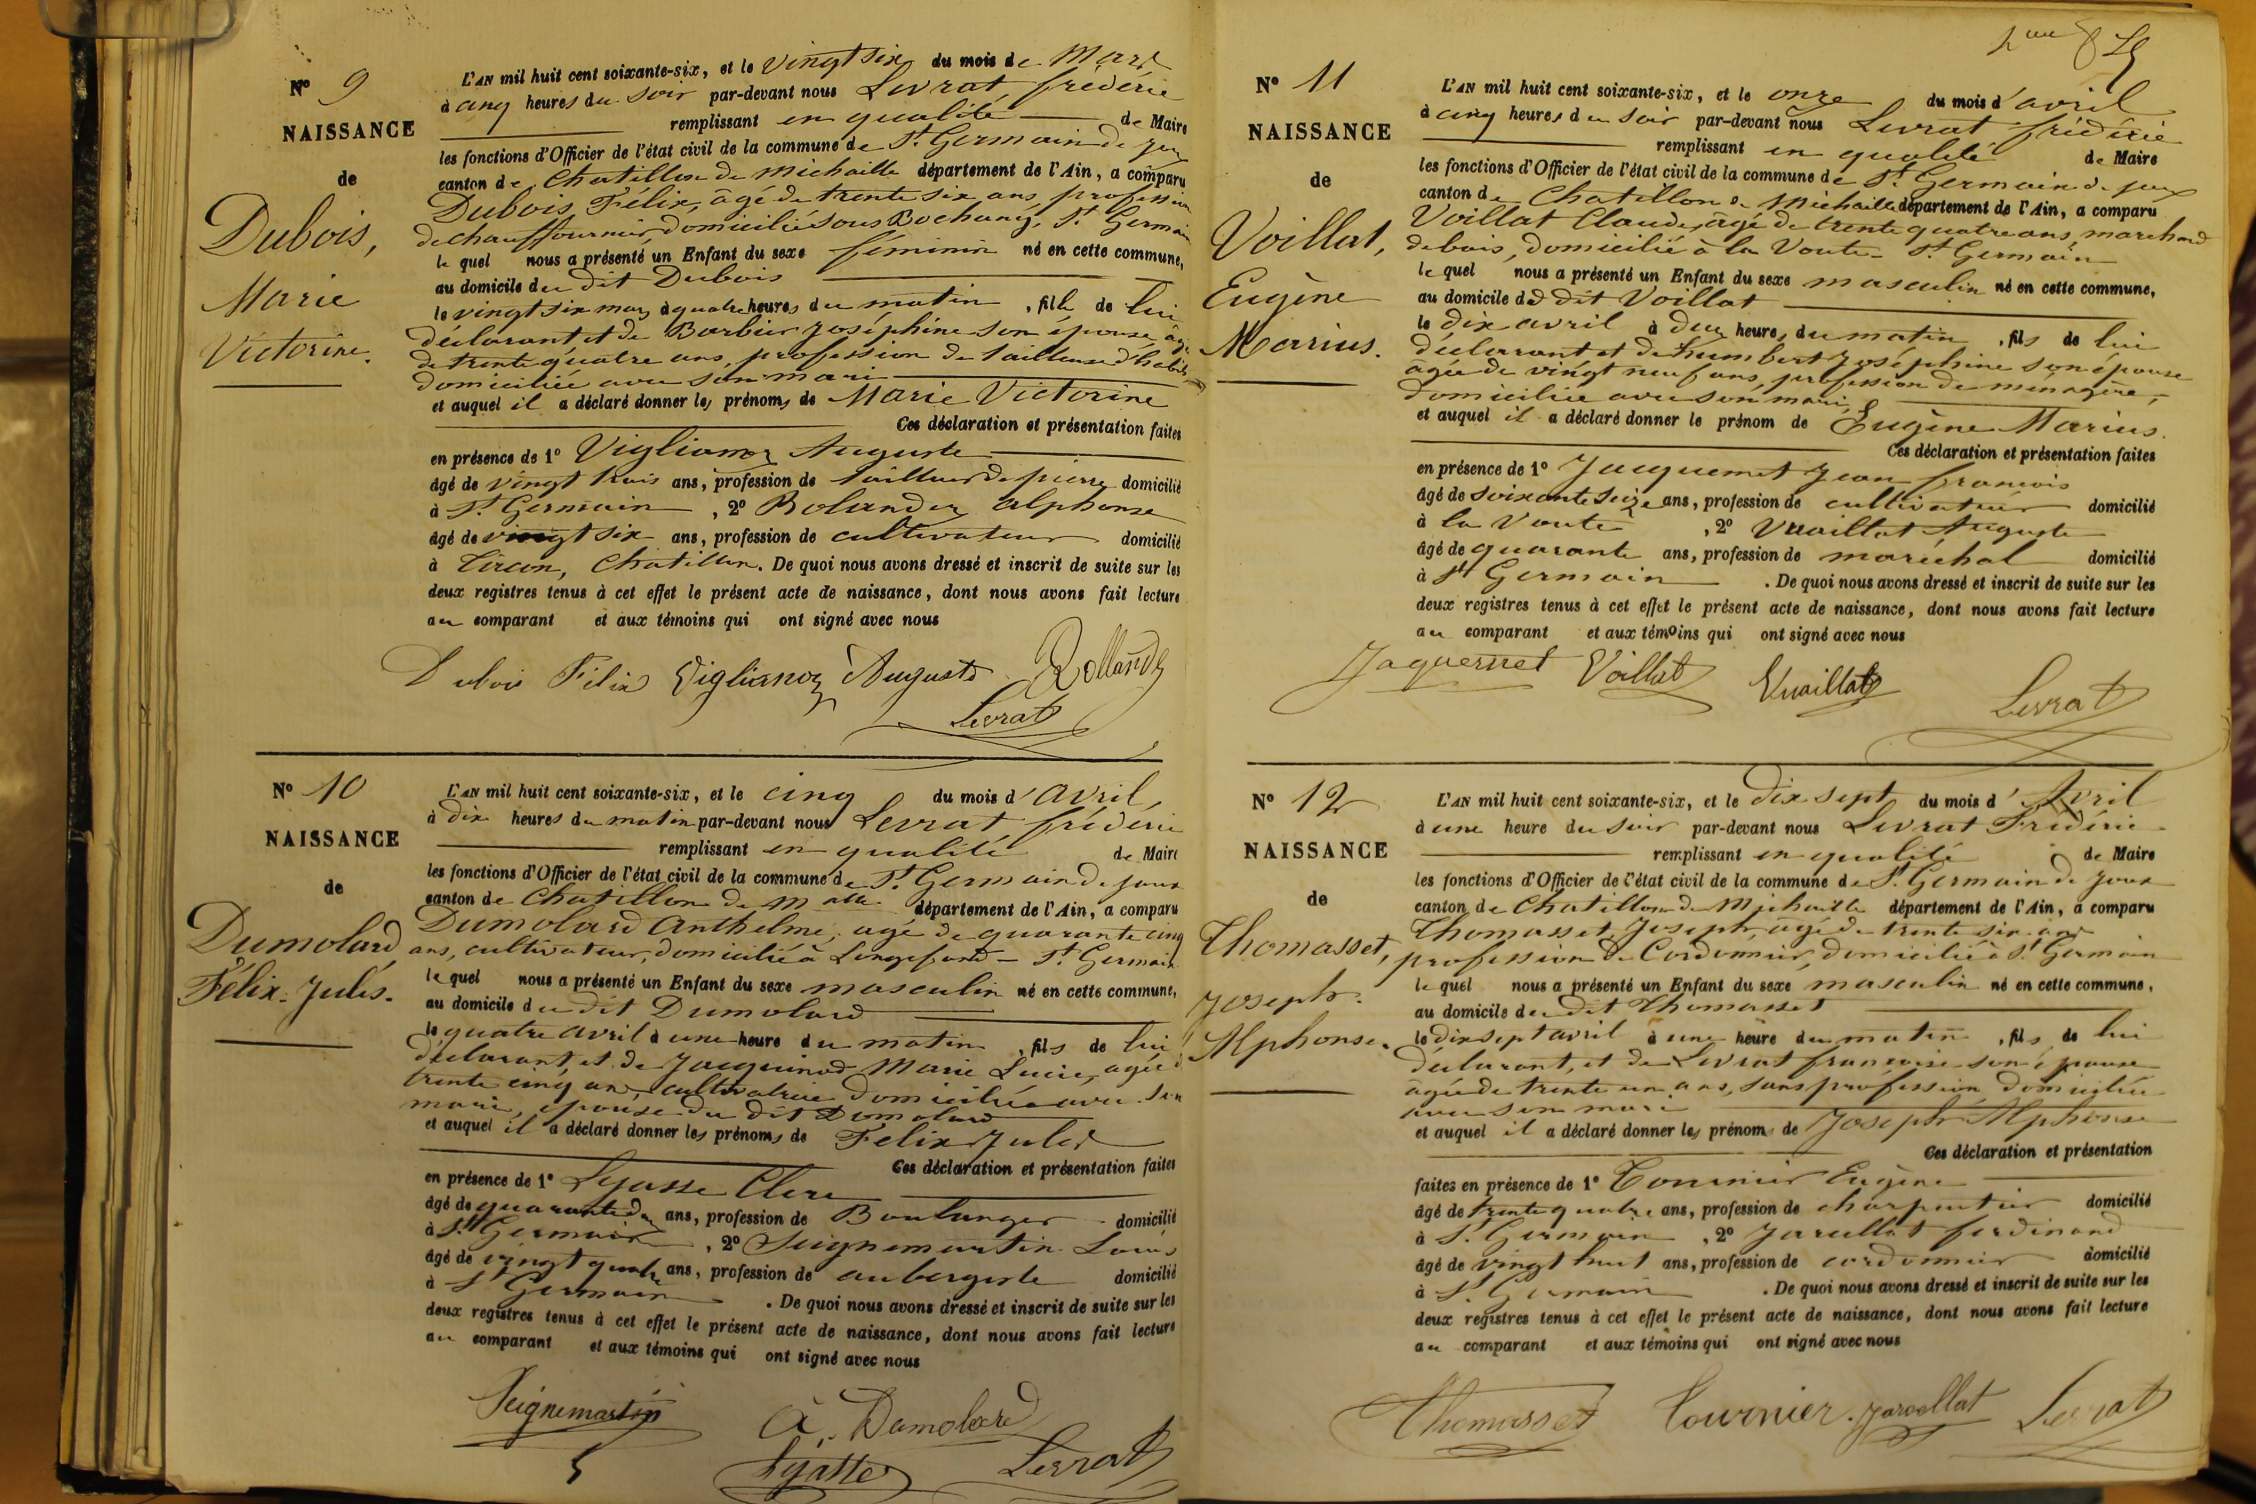 N° 9
NAISSANCE
de
Dubois,
Marie
Victorine.
L'AN mil huit cent soixante-six, et le vingt six du mois de Mars
à cinq heures du soir par-devant nous Levrat, frédéric
remplissant en qualité de Maire
les fonctions d'Officier de l'état civil de la commune de St. Germain de joux
canton de Chatillon de Michaille département de l'Ain, a comparu
Dubois Félix, âgé de trente six ans, profession
de chauffournier, domicilié sous Rochang, St. Germain
le quel nous a présenté un Enfant du sexe féminin né en cette commune,
au domicile du dit Dubois
le vingt six mars à quatre heures du matin, fille de lui
déclarant et de Barbier joséphine son épouse, âgée
de trente quatre ans, profession de tailleuse d'habits
domiciliée avec son mari
et auquel il a déclaré donner les prénoms de Marie Victorine
Ces déclaration et présentation faites
en présence de 1° Viglianoz Auguste
âgé de vingt trois ans, profession de tailleur de pierre domicilié
à St. Germain, 2° Rolandez alphonse
âgé de vingt six ans, profession de cultivateur domicilié
à Tircon, Chatillon. De quoi nous avons dressé et inscrit de suite sur les
deux registres tenus à cet effet le présent acte de naissance, dont nous avons fait lecture
au comparant et aux témoins qui ont signé avec nous
Dubois Félix Viglianoz Auguste Rollandez
Levrat
N° 10
NAISSANCE
de
Dumolard,
Félix-Jules.
L'AN mil huit cent soixante-six, et le cinq du mois d'avril,
à dix heures du matin par-devant nous Levrat, frédéric
remplissant en qualité de Maire
les fonctions d'Officier de l'état civil de la commune de St. Germain de joux
canton de Chatillon de M département de l'Ain, a comparu
Dumolard Anthelme, agé de quarante cinq
ans, cultivateur, domicilié à Longefand - St. Germain
le quel nous a présenté un Enfant du sexe masculin né en cette commune,
au domicile du dit Dumolard
le quatre avril à une heure du matin, fils de lui
déclarant, et de Jacquinod Marie Lucie, agée de
trente cinq ans, cultivatrice domiciliée avec son
mari, épouse du dit Dumolard
et auquel il a déclaré donner les prénoms de Felix Jules
Ces déclaration et présentation faites
en présence de 1° Lyasse Clere
âgé de quarante ans, profession de Boulanger domicilié
à St. Germain, 2° Seignemartin Louis
âgé de vingt quatre ans, profession de aubergiste domicilié
à St Germain. De quoi nous avons dressé et inscrit de suite sur les
deux registres tenus à cet effet le présent acte de naissance, dont nous avons fait lecture
au comparant et aux témoins qui ont signé avec nous
Seignemartin A. Dumolard
Lyasse Levrat
N° 11
NAISSANCE
de
Voillat,
Eugène
Marius.
L'AN mil huit cent soixante-six, et le onze du mois d'avril
à cinq heures du soir par-devant nous Levrat frédéric
remplissant en qualité de Maire
les fonctions d'Officier de l'état civil de la commune de St. Germain de joux
canton de Chatillon de Michaille département de l'Ain, a comparu
Voillat Claude, âgé de trente quatre ans, marchand
de bois, domicilié à la Voute - St. Germain
le quel nous a présenté un Enfant du sexe masculin né en cette commune,
au domicile du dit Voillat
le dix avril à deux heures du matin, fils de lui
déclarant et de humbert Joséphine son épouse
âgée de vingt neuf ans, profession de ménagère,
domiciliée avec son mari,
et auquel il a déclaré donner le prénom de Eugène Marius.
Ces déclaration et présentation faites
en présence de 1° Jacquemet Jean françois
âgé de soixante seize ans, profession de cultivateur domicilié
à la Voute, 2° Vuaillat Auguste
âgé de quarante ans, profession de maréchal domicilié
à St Germain. De quoi nous avons dressé et inscrit de suite sur les
deux registres tenus à cet effet le présent acte de naissance, dont nous avons fait lecture
au comparant et aux témoins qui ont signé avec nous
Jaquemet Voillat Vuaillat Levrat
N° 12
NAISSANCE
de
Thomasset,
Joseph
Alphonse.
L'AN mil huit cent soixante-six, et le dix sept du mois d'Avril
à une heure du soir par-devant nous Levrat Frédéric
remplissant en qualité de Maire
les fonctions d'Officier de l'état civil de la commune de St. Germain de Joux
canton de Chatillon de Michaille département de l'Ain, a comparu
Thomasset, Joseph, âgé de trente six ans
profession de Cordonnier, domicilié à St. Germain
le quel nous a présenté un Enfant du sexe masculin né en cette commune,
au domicile du dit Thomasset
le dix sept avril à une heure du matin, fils de lui
déclarant, et de Levrat françoise son épouse
âgée de trente un ans, sans profession, domiciliée
avec son mari
et auquel il a déclaré donner les prénoms de Joseph Alphonse
Ces déclaration et présentation
faites en présence de 1° Tournier Eugène
âgé de trente quatre ans, profession de charpentier domicilié
à St. Germain, 2° Jarcellat ferdinand
âgé de vingt huit ans, profession de cordonnier domicilié
à St. Germain. De quoi nous avons dressé et inscrit de suite sur les
deux registres tenus à cet effet le présent acte de naissance, dont nous avons fait lecture
au comparant et aux témoins qui ont signé avec nous
Thomasset Tournier. Jarcellat Levrat